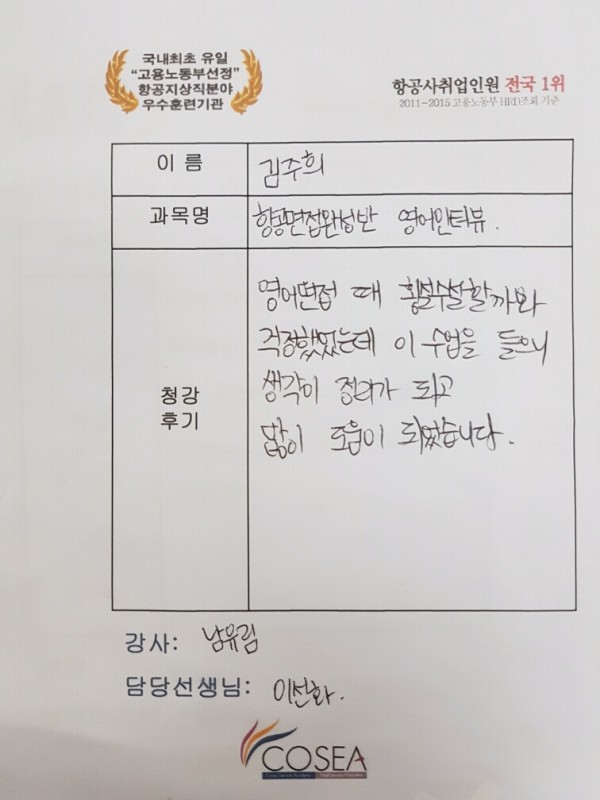 국내최초 유일
“고용노동부선정”
항공지상직분야
우수훈련기관
항공사취업인원 전국 1위
2011-2015 고용노동부 HRD조회 기준
이 름
김주희
과목명
항공면접완성반 영어인터뷰.
청강
후기
영어면접 때 횡설수설할까봐
걱정했었는데 이 수업을 들으니
생각이 정리가 되고
많이 도움이 되었습니다.
강사: 남유림
담당선생님: 이선화.
COSEA